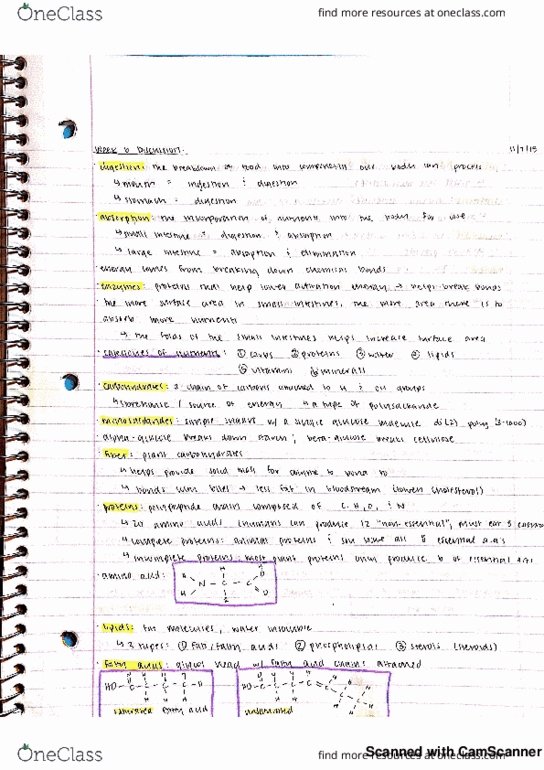 OneClass
find more resources at oneclass.com
WEEK 6 DISCUSSION. 11/7/15
digestion: the breakdown of food into components our bodies can process
↳ mouth = ingestion & digestion
↳ stomach = digestion
absorption: the incorporation of nutrients into the body for use
↳ small intestine = digestion & absorption
↳ large intestine = absorption & elimination
energy comes from breaking down chemical bonds
enzymes: proteins that help lower activation energy → helps break bonds
the more surface area in small intestines, the more area there is to
absorb more nutrients
↳ the folds of the small intestines helps increase surface area
categories of nutrients: ① carbs ② proteins ③ water ④ lipids
⑤ vitamins ⑥ minerals
carbohydrates: a chain of carbons attached to H & OH groups
↳ storehouse / source of energy ↳ a type of
monosaccharides: simple sugars w/ a single glucose molecule di(2) poly
alpha-glucose breaks down starch; beta-glucose breaks cellulose
fiber: plant carbohydrates
↳ helps provide solid for to bond to
↳ bonds with bile → less fat in bloodstream (lowers cholesterol)
proteins: polypeptide chains composed of C, H, O, & N
↳ 20 amino acids (humans can produce 12 "non-essential", must eat 8
↳ complete proteins: animal proteins & soy have all 8 essential a.a's
↳ incomplete proteins: most plant proteins only produce 6 of essential a.a.
amino acid: H H N - C - C O
lipids: fat molecules, water insoluble
↳ 3 types: ① fat/fatty acids ② phospholipids ③ sterols (steroids)
fatty acids: head w/ fatty acid chains attached
HO - C - C - C - C - H
HO - C - C - C - C = C
saturated fatty acid unsaturated
Scanned with CamScanner
OneClass
find more resources at oneclass.com